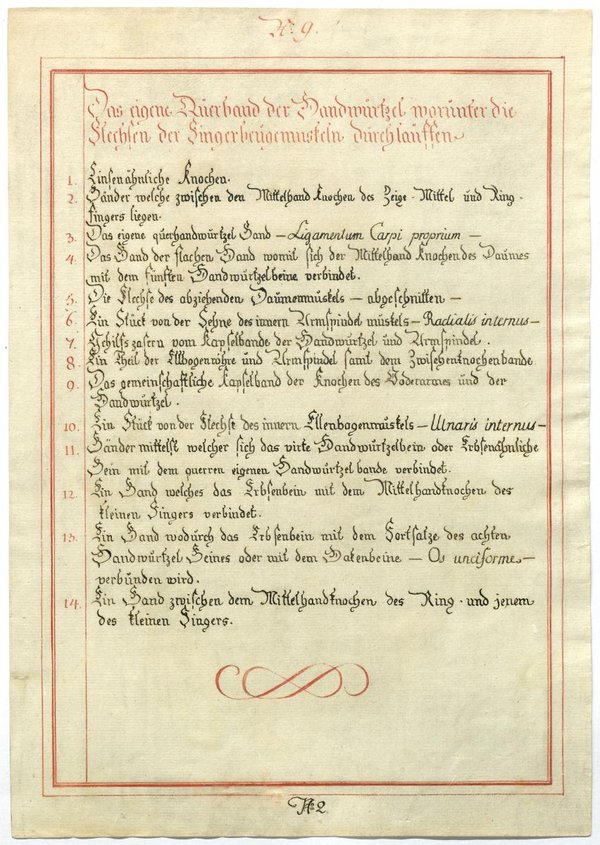 No 9.
Das eigene Querband der Handwürtzel worunter die
Flechsen der Fingerbeugemuskeln dürchlauffen
1. Linsenähnliche Knochen.
2. Bänder welche zwischen den Mittelhand Knochen des Zeige- Mittel und Ring-
fingers liegen.
3. Das eigene querhandwürtzel Band – Ligamentum Carpi proprium –
4. Das Band der flachen Hand womit sich der Mittelhand Knochen des Daumes
mit dem fünften Handwürtzelbeine verbindet.
5. Die Flechse des abziehenden Daumenmuskels – abgeschnitten –
6. Ein Stück von der Sehne des innern Armspindel muskels – Radialis internus –
7. Hilfszasern vom Kapselbande der Handwürtzel und Armspindel.
8. Ein Theil der Ellbogenröhre und Armspindel samt dem Zwischenknochenbande
9. Das gemeinschaftliche Kapselband der Knochen des Voderarmes und der
Handwürtzel.
10. Ein Stück von der Flechse des innern Ellenbogenmuskels – Ulnaris internus –
11. Bänder mittelst welcher sich das virte Handwürtzelbein oder Erbsenähnliche
Bein mit dem querren eigenen Handwürtzel bande verbindet.
12. Ein Band welches das Erbsenbein mit dem Mittelhandknochen des
kleinen Fingers verbindet.
13. Ein Band wodurch das Erbsenbein mit dem Fortsatze des achten
Handwürtzel Beines oder mit dem Hakenbeine – Os unciforme –
verbünden wird.
14. Ein Band zwischen dem Mittelhandknochen des Ring- und jenem
des kleinen Fingers.
No 2